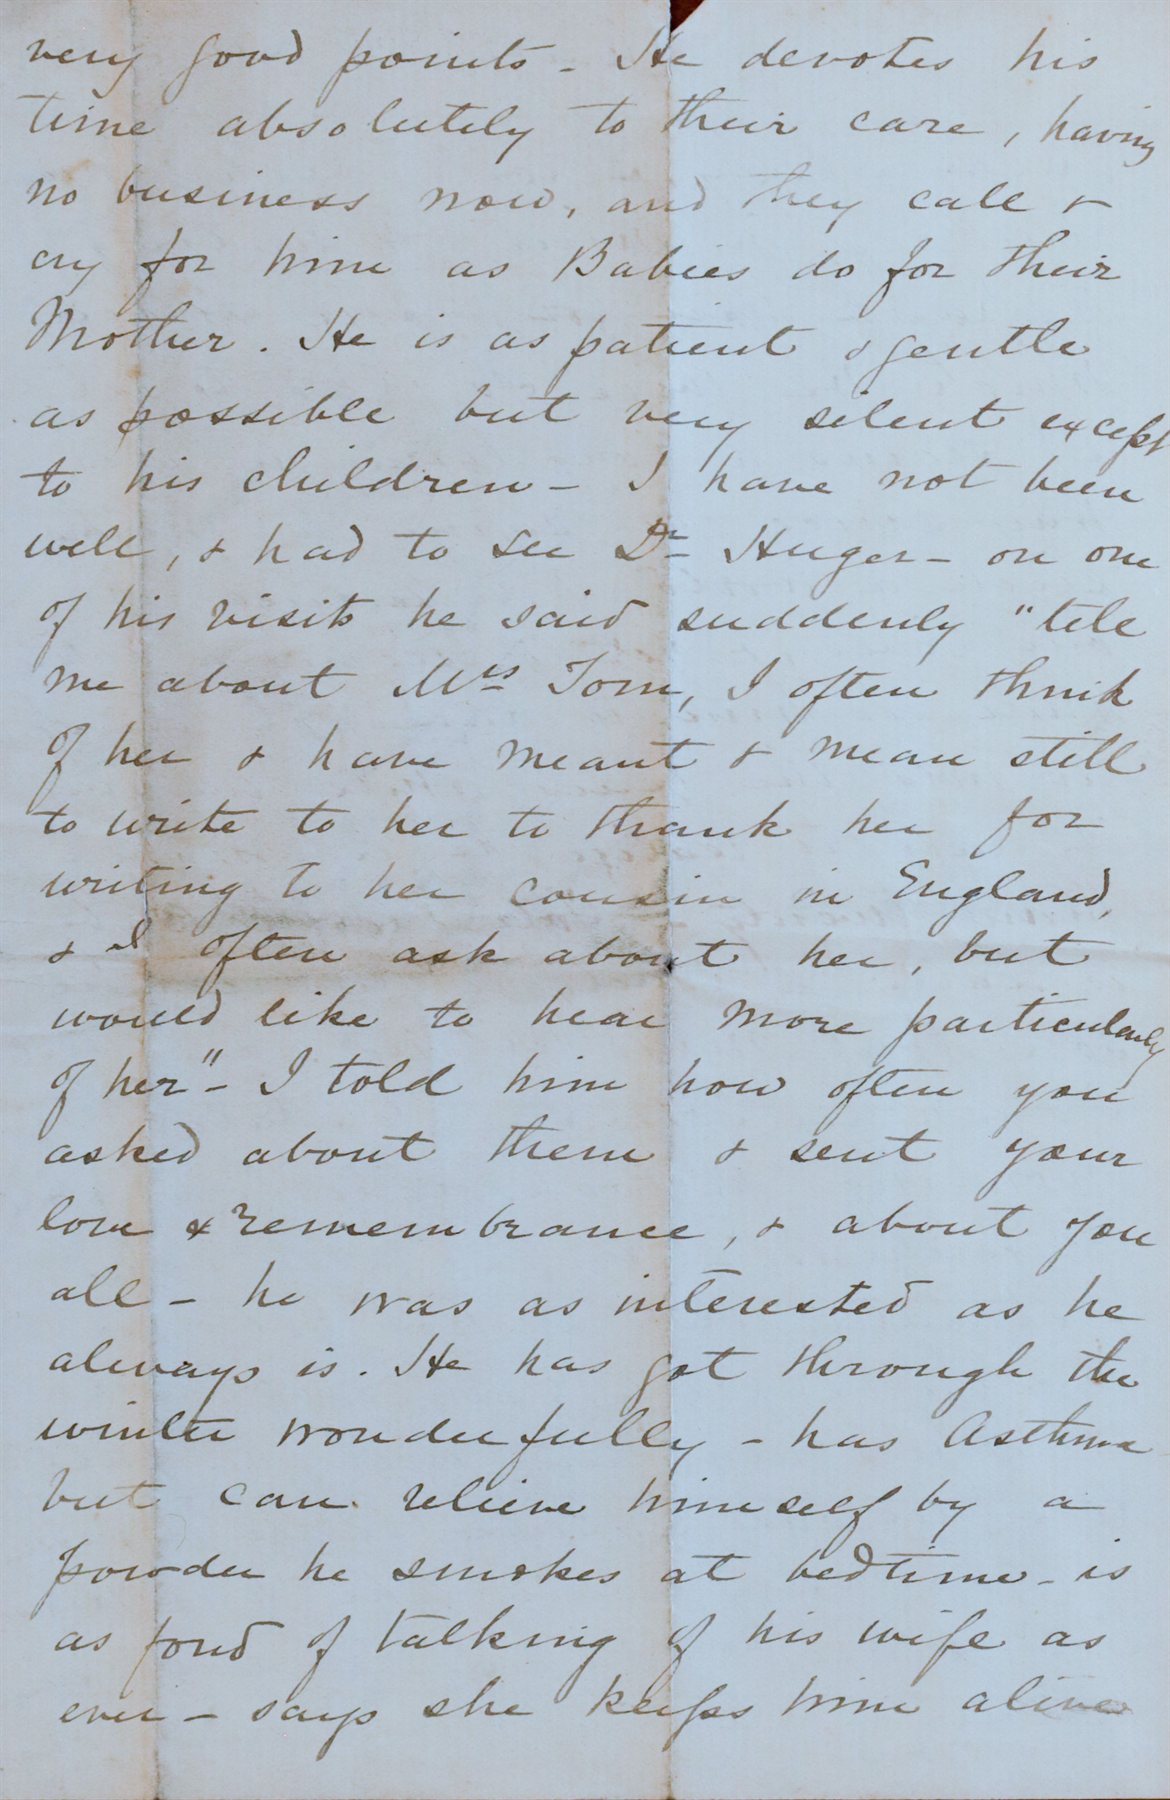 very good points - He devotes his
time absolutely to their care, having
no business now, and they call &
cry for him as Babies do for their
Mother. He is as patient & gentle
as possible but very silent except
to his children - I have not been
well, & had to see Dr Huger - on one
of his visits he said suddenly "tell
me about Mrs Tom, I often think
of her & have meant & mean still
to write to her to thank her for
writing to her cousin in England,
& I often ask about her, but
would like to hear more particularly
of her" - I told him how often you
asked about them & sent your
love & remembrance, & about you
all - he was as interested as he
always is. He has got through the
winter wonderfully - has Asthma
but can relieve himself by a
powder he smokes at bedtime - is
as fond of talking of his wife as
ever - says she keeps him alive